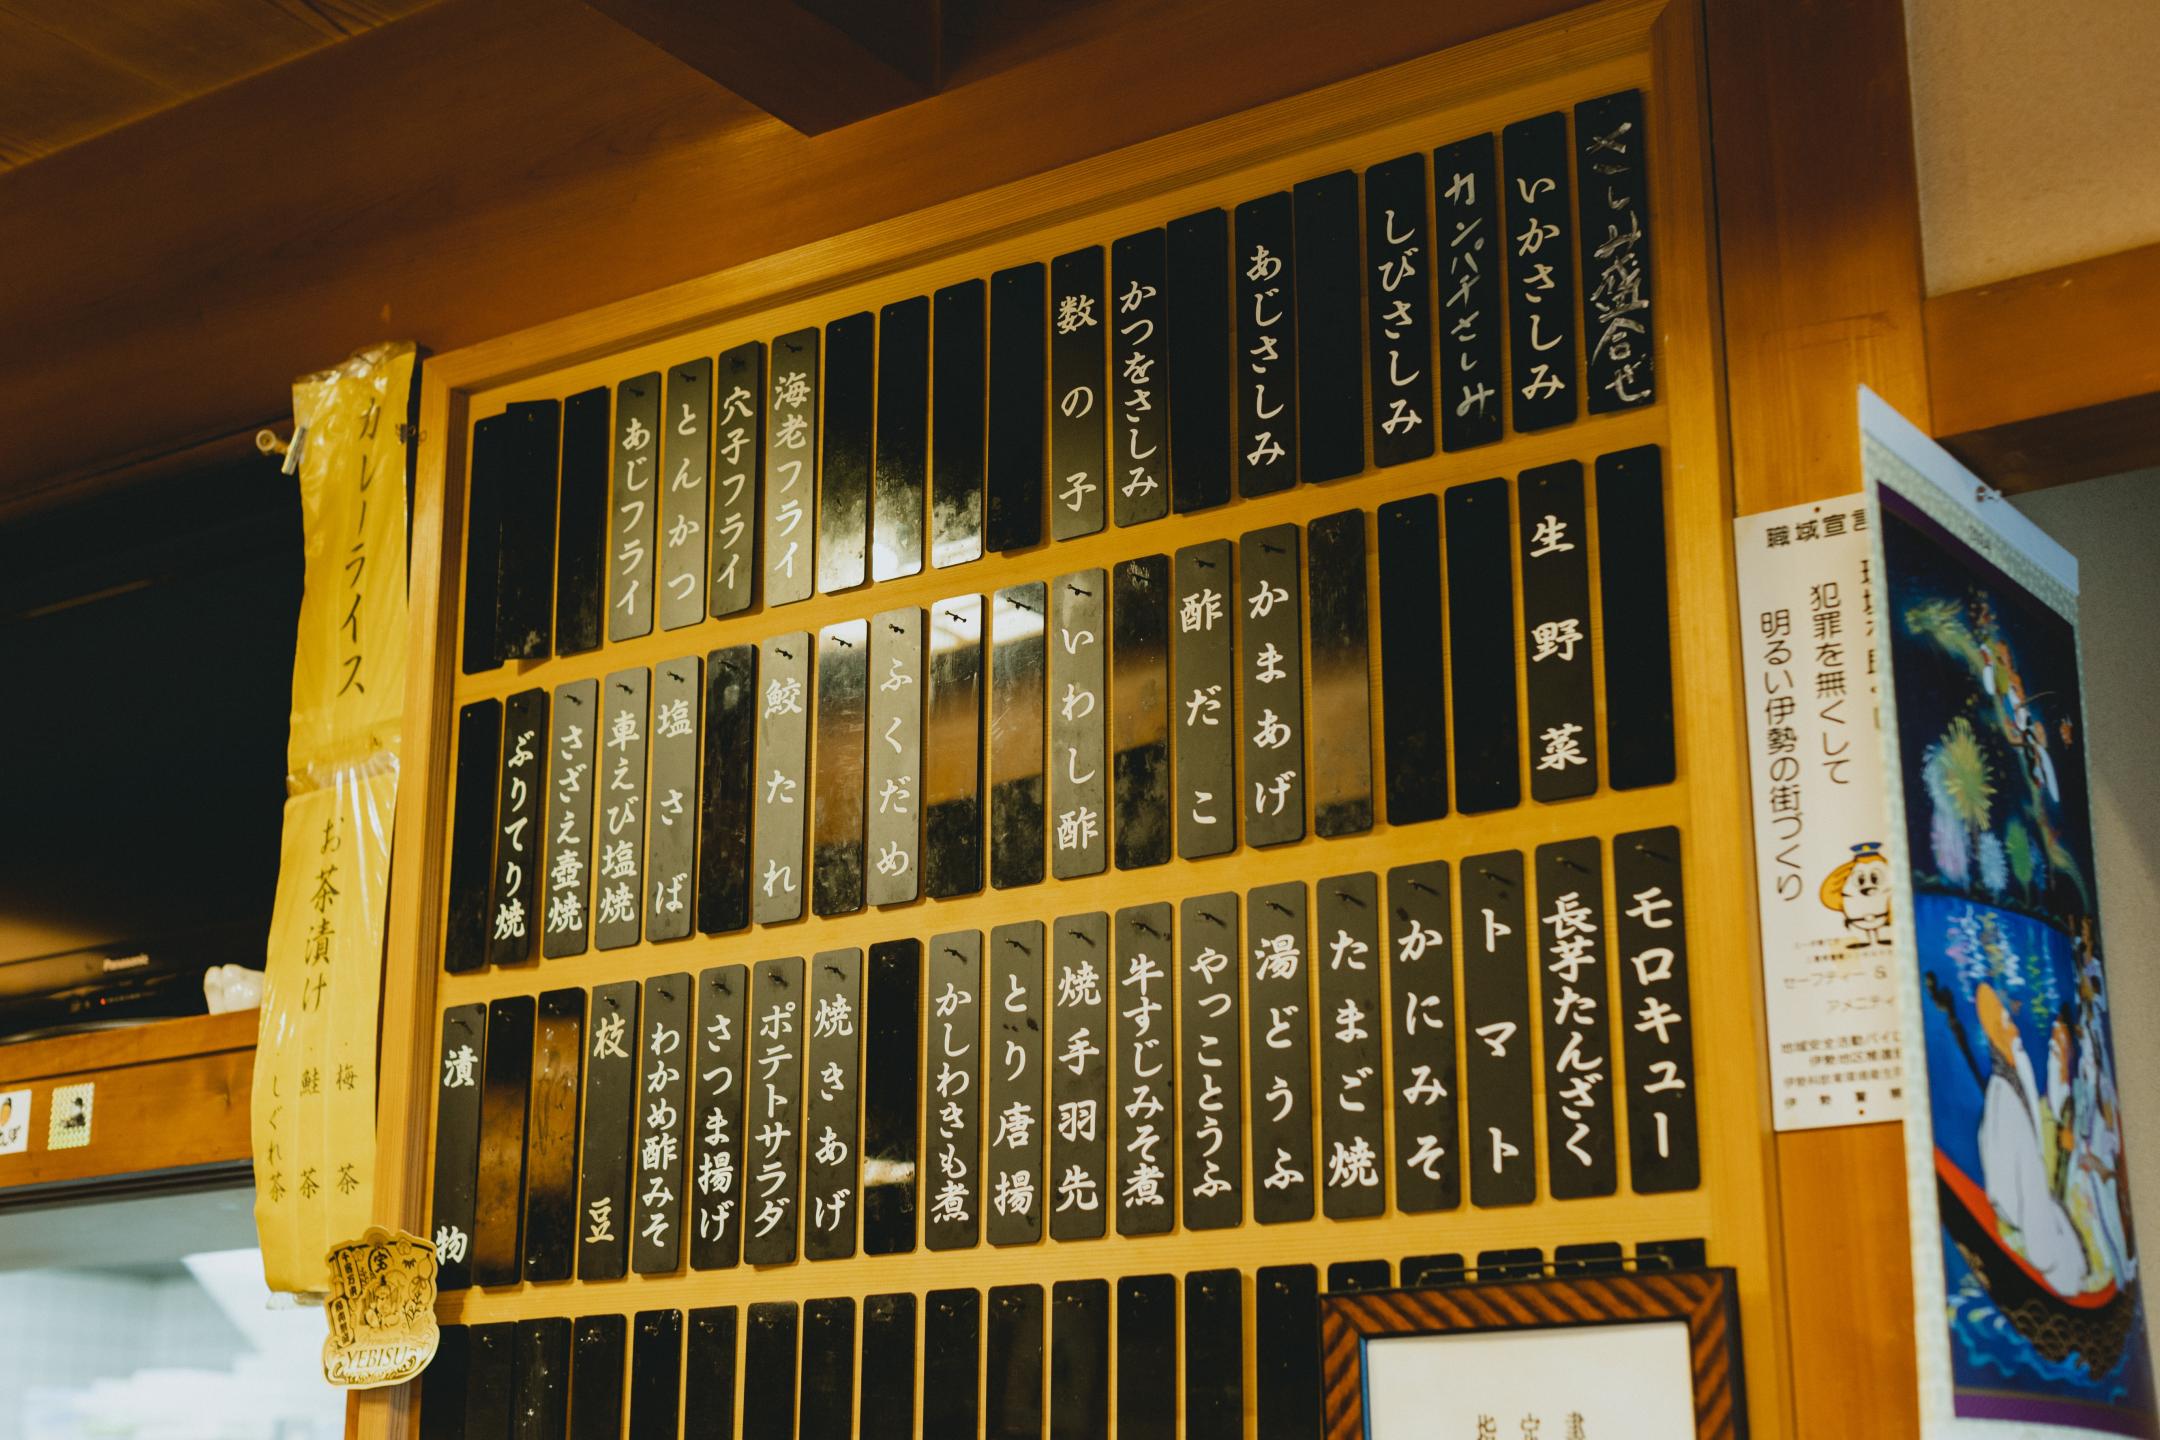 さしみ盛合せ
いかさしみ
カンパチさしみ
しびさしみ
あじさしみ
かつをさしみ
数の子
海老フライ
穴子フライ
とんかつ
あじフライ
生野菜
かまあげ
酢だこ
いわし酢
ふくだめ
鮫たれ
塩さば
車えび塩焼
さざえ壺焼
ぶりてり焼
モロキュー
長芋たんざく
トマト
かにみそ
たまご焼
湯どうふ
やっことうふ
牛すじみそ煮
焼手羽先
とり唐揚
かしわきも煮
焼きあげ
ポテトサラダ
さつま揚げ
わかめ酢みそ
枝豆
漬物
カレーライス
お茶漬け
梅茶
鮭茶
しぐれ茶
職域宣言
犯罪を無くして
明るい伊勢の街づくり
セーフティー &
アメニティ
指定書
Panasonic
宝
YEBISU